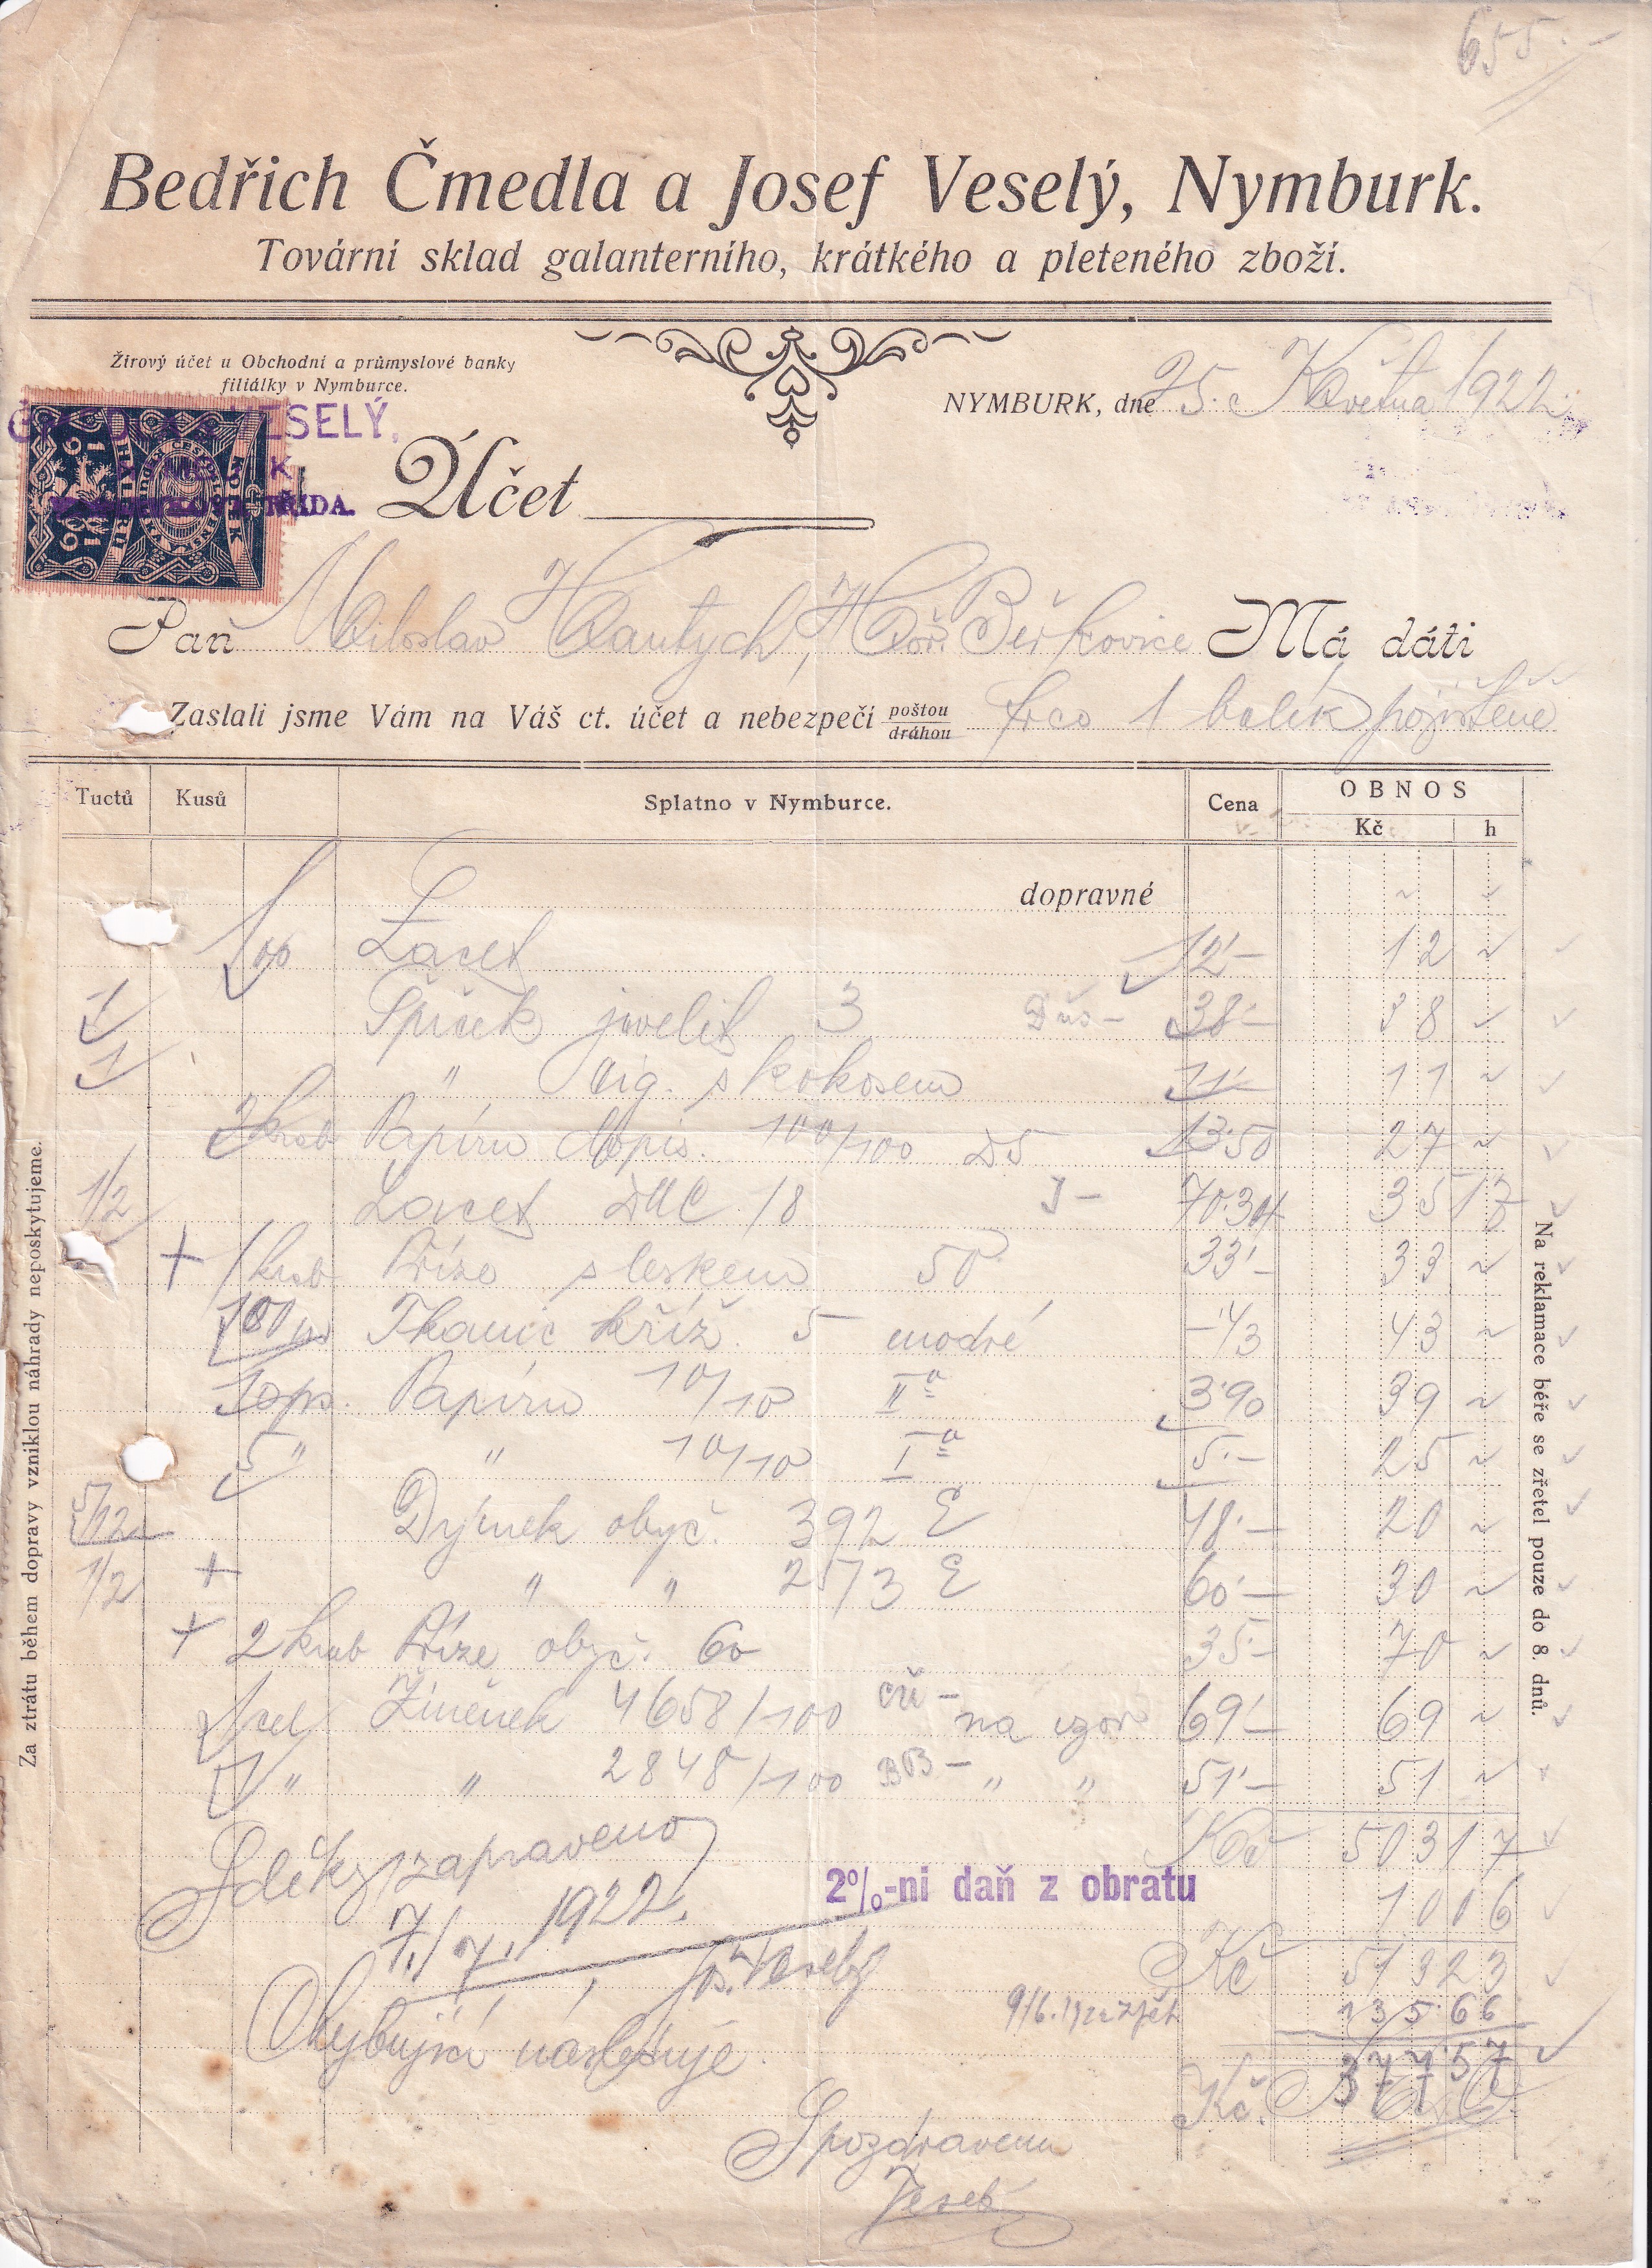 655.-
Bedřich Čmedla a Josef Veselý, Nymburk.
Tovární sklad galanterního, krátkého a pleteného zboží.
Žirový účet u Obchodní a průmyslové banky
filiálky v Nymburce.
NYMBURK, dne 25. Května 1922
ESELÝ,
TŘÍDA.
Účet
Pan Miloslav Hautych, Hoř. Beřkovice Má dáti
Zaslali jsme Vám na Váš ct. účet a nebezpečí poštou dráhou frco 1 balík pojištěně
Tuctů Kusů Splatno v Nymburce. Cena OBNOS
Kč h
dopravné
Lacet 12'- 12 ~
1 Špiček juvelit 3 38'- 38 ~
1 " cig. s kokosem 11'- 11 ~
2 krab Papíru dopis. 100/100 D5 13.50 27 ~
1/2 Lacet DMC 18 70.34 35 17
+ 1 krab Příze s leskem 50 33'- 33 ~
100 m Tkanic kříž 5 modré -43 43 ~
10 ps. Papíru 10/10 IIa 3.90 39 ~
5 " " 10/10 Ia 5.- 25 ~
5/12 Dýmek obyč. 392 E 48'- 20 ~
1/2 + " " 2573 E 60'- 30 ~
+ 2 krab Příze obyč. 60 35- 70 ~
1 cel Žiněnek 4658/100 na 69'- 69 ~
1 " " 2848/100 " " 51'- 51 ~
Kč 503 17
S díky zapraveno
2%-ni daň z obratu 10 06
7./7. 1922.
Jos. Veselý
Kč 513 23
9/6. 1922 zpět 135.66
Chybující následuje.
Kč. 377 57
S pozdravem
Veselý
Za ztrátu během dopravy vzniklou náhrady neposkytujeme.
Na reklamace béře se zřetel pouze do 8. dnů.